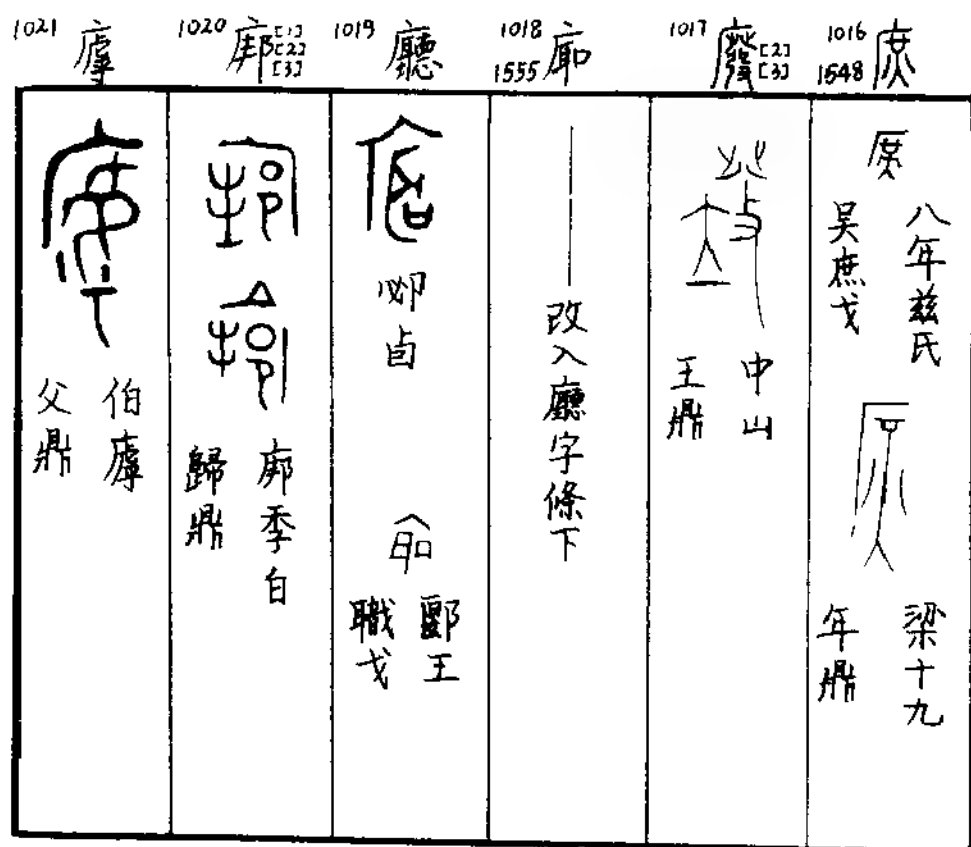 1016
1548
庶
八年茲氏
吴庶戈
梁十九
年鼎
1017
廢
[2]
[3]
中山
王鼎
1018
1555
廊
改入廳字條下
1019
廳
卣
郾王
職戈
1020
[1]
[2]
[3]
季白
歸鼎
1021
伯
父鼎